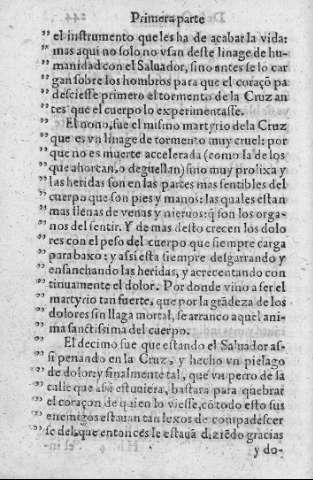 Primera parte
” el instrumento que les ha de acabar la vida:
” mas aqui no solo no vsan deste linage de hu-
” manidad con el Saluador, sino antes se lo car
” gan sobre los hombros para que el coraçõ pa
” desciesse primero el tormento de la Cruz an
” tes que el cuerpo lo experimentasse.
” El nono, fue el mismo martyrio dela Cruz
” que es vn linage de tormento muy cruel: por
” que no es muerte accelerada (como la de los
” que ahorcan, o deguellan) sino muy prolixa y
” las heridas son en las partes mas sentibles del
” cuerpo que son pies y manos: las quales estan
” mas llenas de venas y nieruos: q̃ son los orga-
” nos del sentir. Y de mas desto crecen los dolo
” res con el peso del cuerpo que siempre carga
” para baxo: y assi esta siempre desgarrando y
” ensanchando las heridas, y acrecentando con
” tinuamente el dolor. Por donde vino a ser el
” martyrio tan fuerte, que por la grãdeza de los
” dolores sin llaga mortal, se arranco aquel ani-
” ma sanctissima del cuerpo.
” El decimo fue que estando el Saluador as-
” si penando en la Cruz, y hecho vn pielago
” de dolor: y finalmente tal, que vn perro de la
” calle que assi estuuiera, bastara para quebrar
” el coraçon de quien lo viesse, cõ todo esto sus
” enemigos estauan tan lexos de compadescer
” se del, que entonces le estauã diziẽdo gracias
y do-